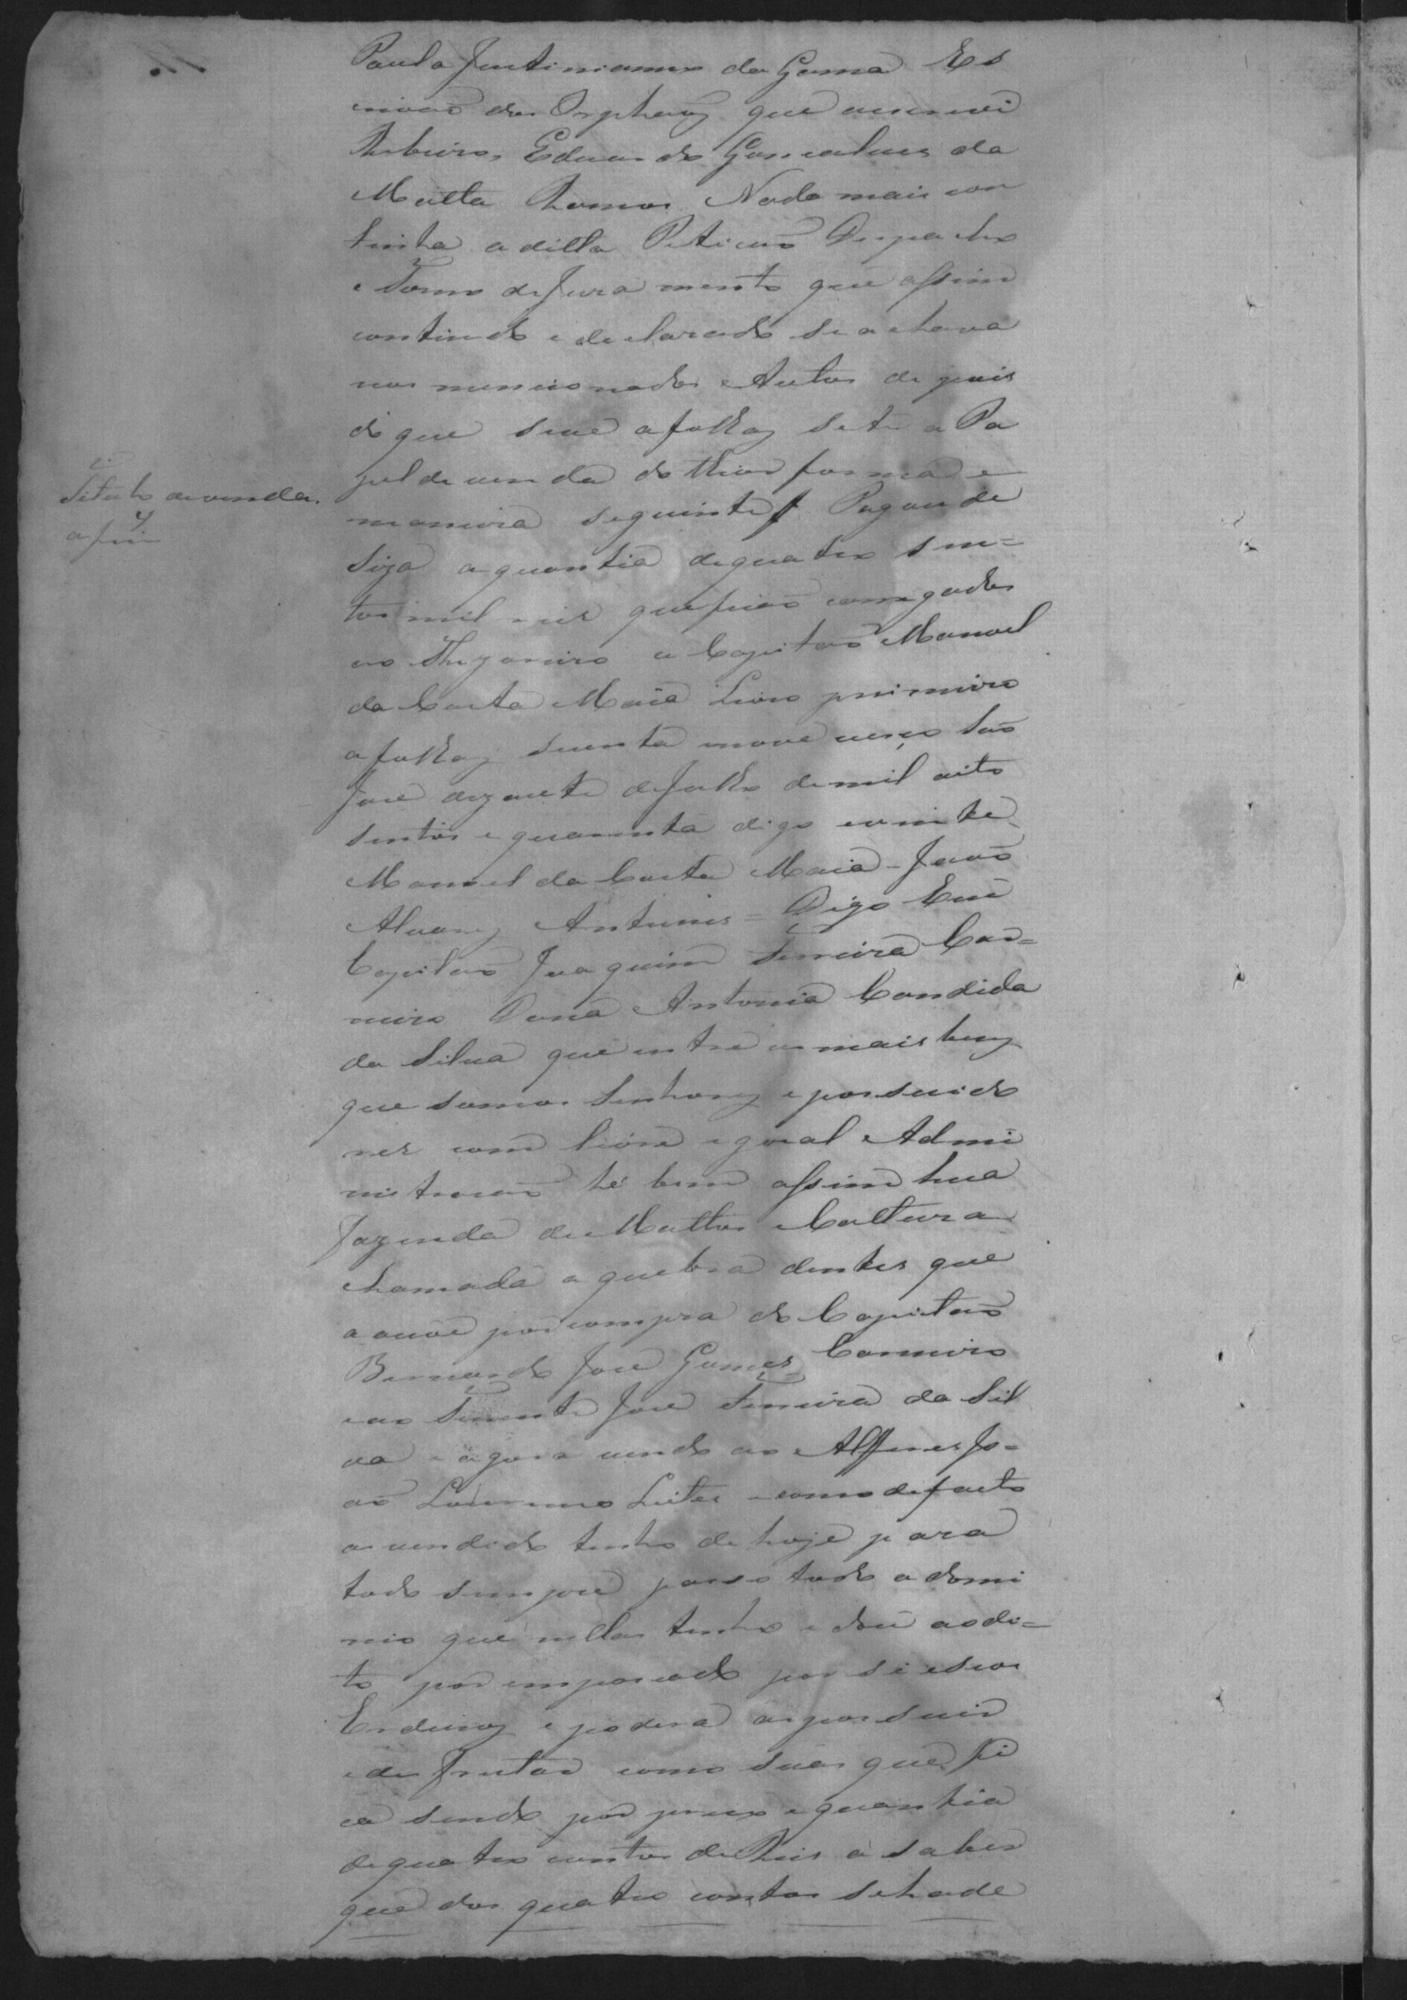 Paula Justinianno da Gama Es
crivaõ dos Orphaõs que escrevi
Ribeiro, Eduardo Gonçalves da
Motta Ramos. Nada mais con
tinha a ditta Peticaõ Despacho
e Termo de Juramento que assim
contindo e declarado se achava
nos mencionados Autos depois
do que se ve a folhas sete o Pa
pel de venda do theor forma e
maneira seguinte Pagou de
Siza a quantia de quatro sen=
tos mil reis que ficaõ carregados
ao Thezoreiro o Capitaõ Manoel
da Costa Maia Livro primeiro
a folhas secenta e nove verço Saõ
Jose dezacete de Julho de mil oito
sentos e quarenta digo e vinte
Manoel da Costa Maia = Joaõ
Alvares Antunes = Digo Eu
Capitaõ Joaquim Ferreira Car=
neiro Dona Antonia Candida
da Silva que entre os mais bens
que somos Senhores e possuido
res com livre e geral Admi
nistracaõ he bem assim hua
Fazenda de Mattos e Cultura
chamada a quebra dentes que
a ouve por compra do Capitaõ
Bernardo Jose Gomes Carneiro
e ao Tenente Jose Ferreira da Sil
va e agora vendo ao Alferes Jo=
aõ Lourenço Leite e como de facto
a vendido tenho de hoje para
todo sempre passo todo o domi
nio que nellas tenho e dou ao di=
to por empossado por si e seos
Erdeiros e podera as possuir
e desfrutar como suas que fi
ca sendo por preço e quantia
de quatro contos de Reis a saber
que dos quatro contos se hade
Titulo de venda
a f